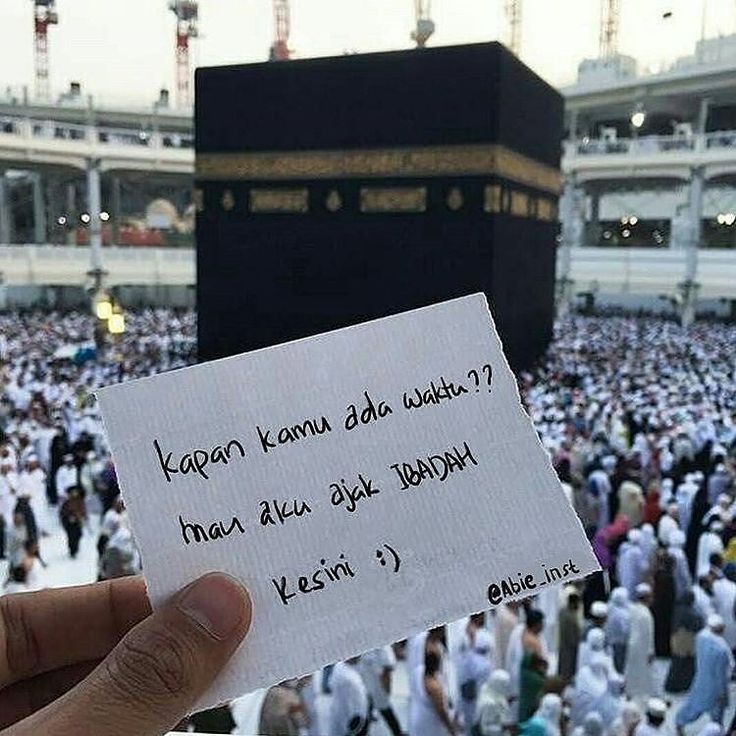 kapan kamu ada waktu??
mau aku ajak IBADAH
kesini :)
@Abie_inst